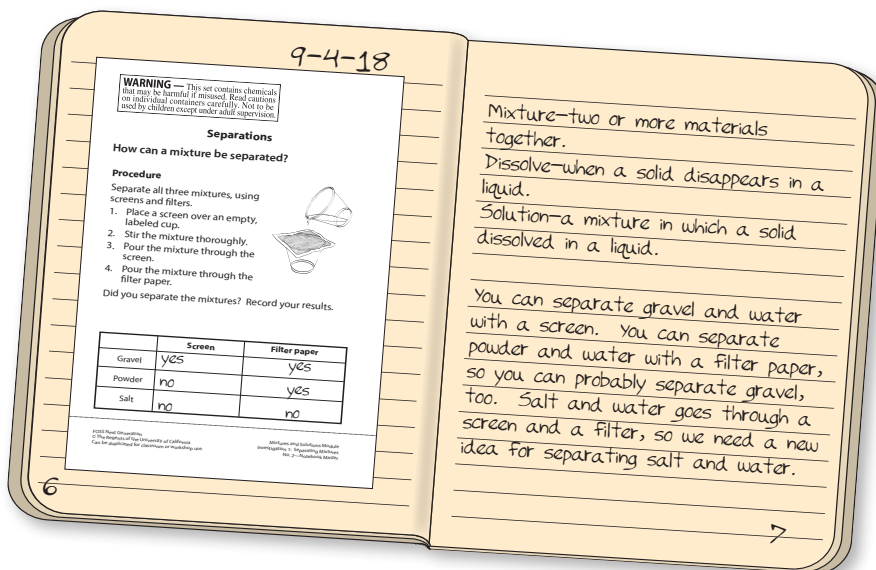 9-4-18
WARNING — This set contains chemicals
that may be harmful if misused. Read cautions
on individual containers carefully. Not to be
used by children except under adult supervision.
Separations
How can a mixture be separated?
Procedure
Separate all three mixtures, using
screens and filters.
1. Place a screen over an empty,
labeled cup.
2. Stir the mixture thoroughly.
3. Pour the mixture through the
screen.
4. Pour the mixture through the
filter paper.
Did you separate the mixtures? Record your results.
Screen Filter paper
Gravel yes yes
Powder no yes
Salt no no
FOSS Next Generation
© The Regents of The University of California
Can be duplicated for classroom or workshop use.
Mixtures and Solutions Module
Investigation 1: Separating Mixtures
No. 2—Notebook Master
6
Mixture—two or more materials
together.
Dissolve—when a solid disappears in a
liquid.
Solution—a mixture in which a solid
dissolved in a liquid.
You can separate gravel and water
with a screen. You can separate
powder and water with a filter paper,
so you can probably separate gravel,
too. Salt and water goes through a
screen and a filter, so we need a new
idea for separating salt and water.
7